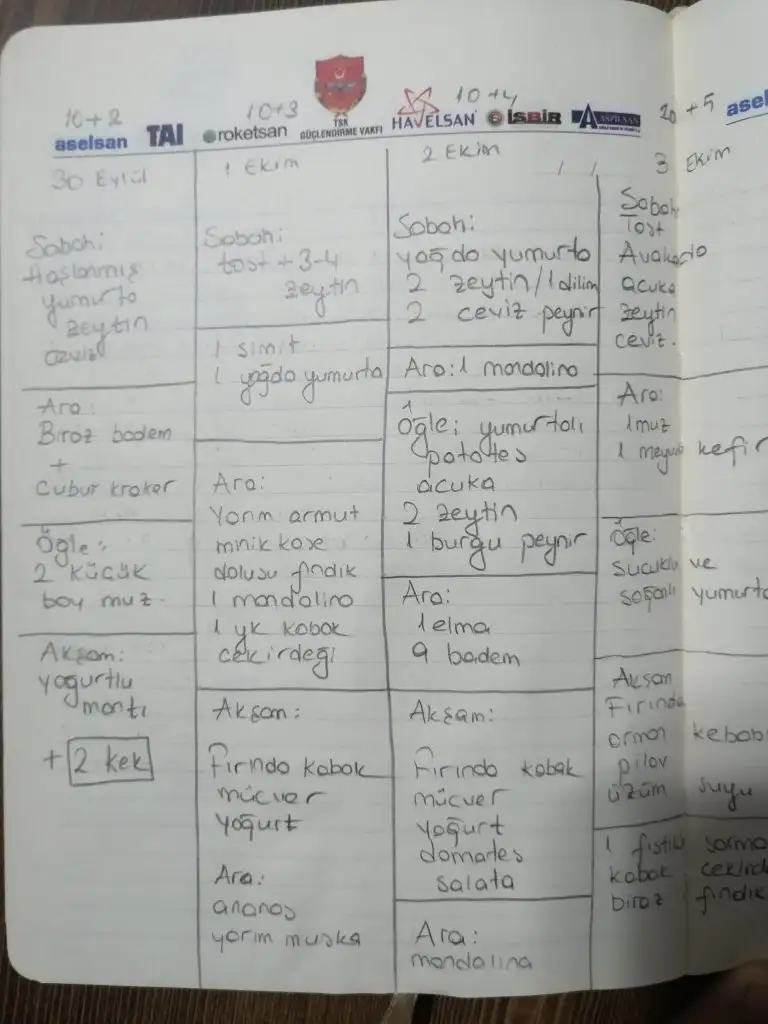 10+2
10+3
10+4
20+5
aselsan
TAI
roketsan
TSK
GÜÇLENDİRME VAKFI
HAVELSAN
İŞBİR
ASPİLSAN
asel
30 Eylül
Sabah:
Haşlanmış
yumurta
zeytin
ceviz
Ara:
Biraz badem
+
Cubuk kraker
Öğle:
2 küçük
boy muz.
Akşam:
yogurtlu
mantı
+ 2 kek
1 Ekim
Sabah:
tost + 3-4
zeytin
1 simit
1 yağda yumurta
Ara:
Yarım armut
minik kase
dolusu fındık
1 mandalina
1 yk kabak
cekirdeği
Akşam:
Fırında kabak
mücver
yoğurt
Ara:
ananas
yarım muska
2 Ekim
Sabah:
yağda yumurta
2 zeytin/1 dilim
2 ceviz peynir
Ara: 1 mandalina
Öğle: yumurtalı
patates
acuka
2 zeytin
1 burgu peynir
Ara:
1 elma
9 badem
Akşam:
Fırında kabak
mücver
yoğurt
domates
salata
Ara:
mandalina
3 Ekim
Sabah
Tost
Avakado
acuka
zeytin
ceviz.
Ara:
1 muz
1 meyveli kefir
Öğle:
sucuklu ve
soğanlı yumurta
Akşam
Fırında
orman kebabı
pilav
üzüm suyu
1 fıstıklı sarma
kabak cekirde
biraz fındık